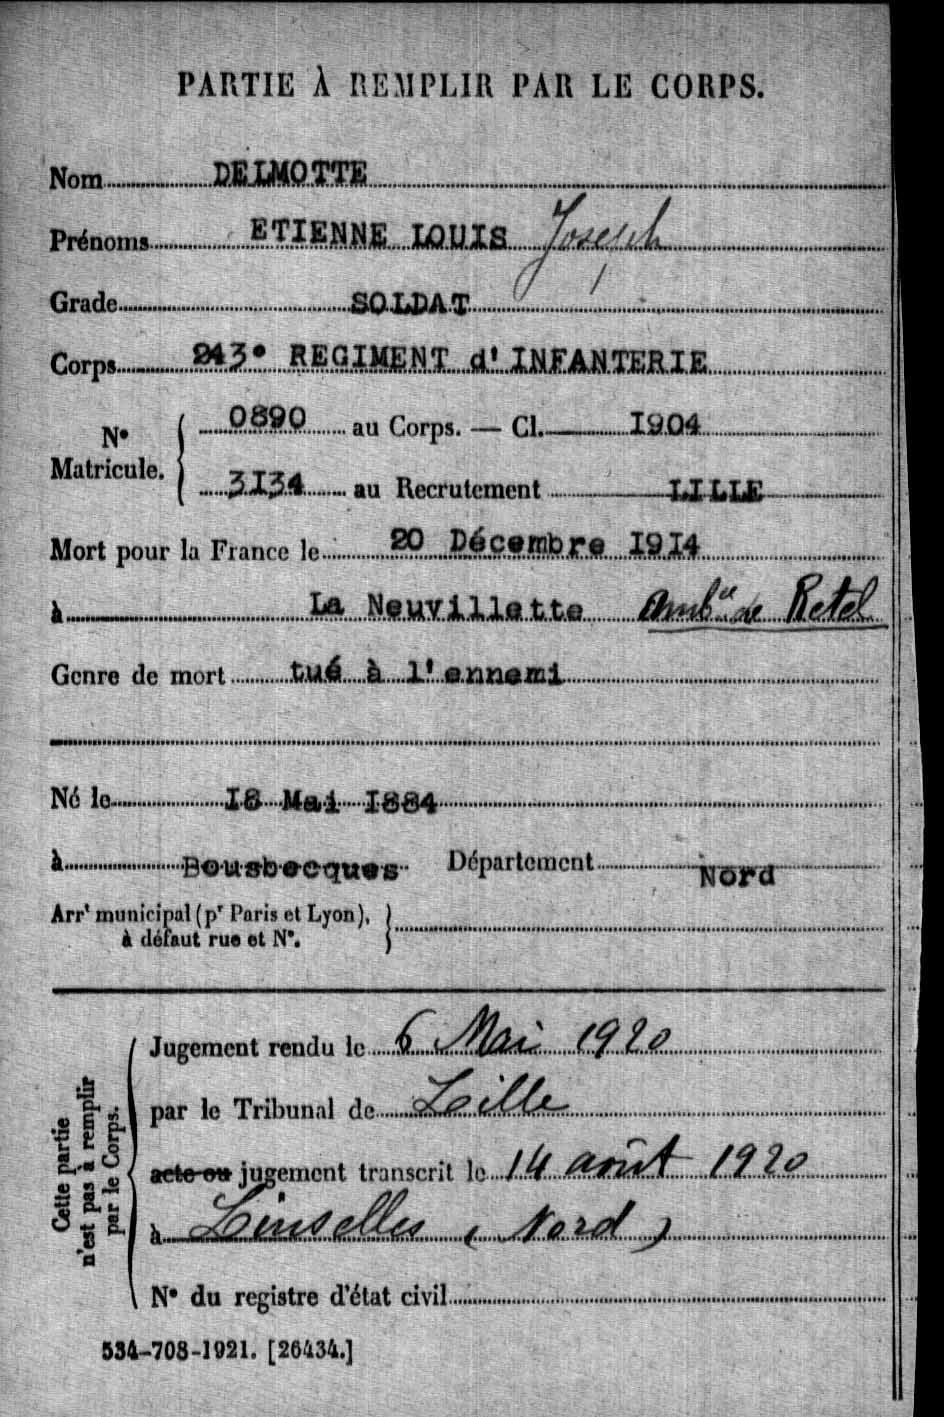 PARTIE À REMPLIR PAR LE CORPS.
Nom DELMOTTE
Prénoms ETIENNE LOUIS Joseph
Grade SOLDAT
Corps 243e REGIMENT d'INFANTERIE
N° Matricule. 0890 au Corps. — Cl. I904
3I34 au Recrutement LILLE
Mort pour la France le 20 Décembre I9I4
à La Neuvillette Ambce de Retel
Genre de mort tué à l'ennemi
Né le I8 Mai I884
à Bousbecques Département Nord
Arrt municipal (pr Paris et Lyon),
à défaut rue et N°.
Cette partie n'est pas à remplir par le Corps.
Jugement rendu le 6 Mai 1920
par le Tribunal de Lille
acte ou jugement transcrit le 14 août 1920
à Linselles (Nord)
N° du registre d'état civil
534-708-1921. [26434.]